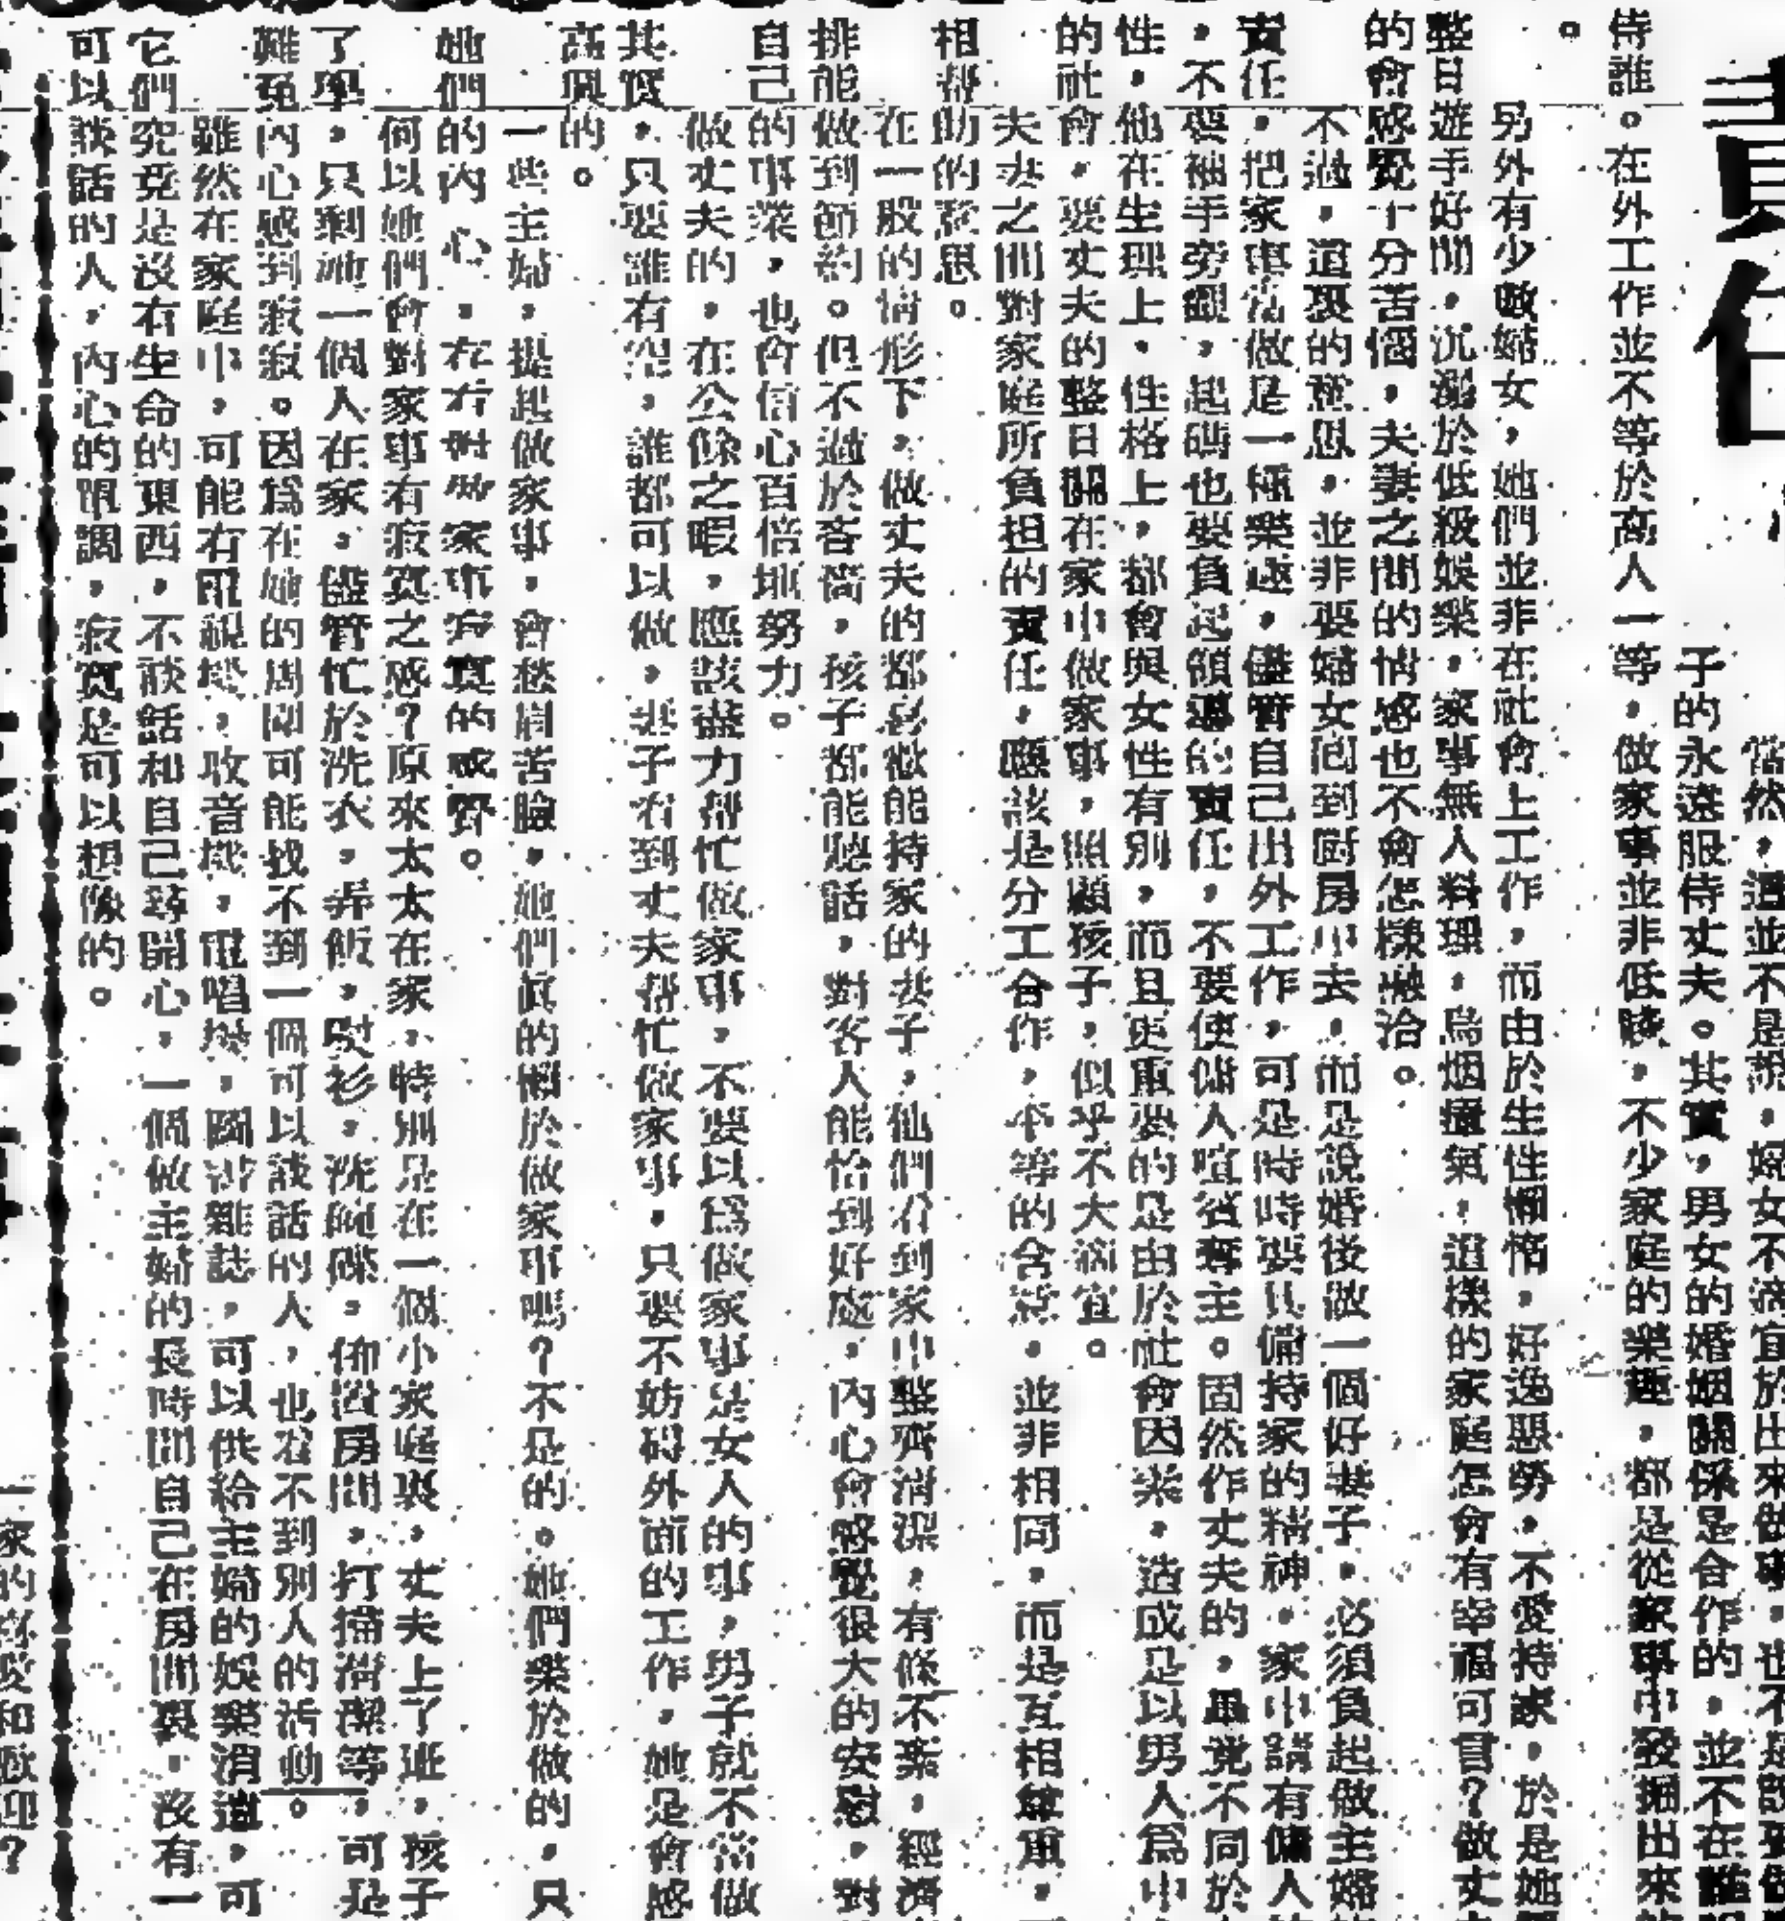 責任
當然，這並不是說，婦女不適宜於出來做事，也不是說要做
子的永遠服侍丈夫。其實，男女的婚姻關係是合作的，並不在誰
侍誰。在外工作並不等於高人一等，做家事並非低賤，不少家庭的樂趣，都是從家事中發掘出來
。
另外有少數婦女，她們並非在社會上工作，而由於生性懶惰，好逸惡勞，不愛持家，於是
整日遊手好閒，沉溺於低級娛樂，家事無人料理，烏烟瘴氣，這樣的家庭怎會有幸福可言？做丈
的會感覺十分苦惱，夫妻之間的情感也不會怎樣融洽。
不過，這裏的意思，並非要婦女回到厨房中去，而是說婚後做一個好妻子，必須負起做主婦
責任，把家事當做是一種樂趣，儘管自己出外工作，可是時時要具備持家的精神，家中請有傭人
，不要袖手旁觀，起碼也要負起領導的責任，不要使傭人喧賓奪主。固然作丈夫的，畢竟不同於
性，他在生理上，性格上，都會與女性有別，而且更重要的是由於社會因素，造成是以男人爲中
的社會，要丈夫的整日關在家中做家事，照顧孩子，似乎不大適宜。
夫妻之間對家庭所負担的責任，應該是分工合作，平等的含意，並非相同，而是互相尊重，
相幫助的意思。
在一般的情形下，做丈夫的都喜歡能持家的妻子，他們看到家中整齊清潔，有條不紊，經濟
排能做到節約。但不過於吝嗇，孩子都能聽話，對客人能恰到好處，內心會感覺很大的安慰，對
自己的事業，也會信心百倍地努力。
做丈夫的，在公餘之暇，應該盡力幫忙做家事，不要以爲做家事是女人的事，男子就不當做
其實，只要誰有空，誰都可以做，妻子看到丈夫幫忙做家事，只要不妨碍外面的工作，她是會感
高興的。
一些主婦，提起做家事，會愁眉苦臉，她們真的懶於做家事嗎？不是的。她們樂於做的，只
她們的內心，在有對做家事寂寞的感覺。
何以她們會對家事有寂寞之感？原來太太在家，特別是在一個小家庭裏，丈夫上了班，孩子
了學，只剩她一個人在家，儘管忙於洗衣，弄飯，熨衫，洗碗碟，佈置房間，打掃清潔等，可是
難免內心感到寂寂。因爲在她的周圍可能找不到一個可以談話的人，也看不到別人的活動。
雖然在家庭中，可能有電視機，收音機，電唱機，圖書雜誌，可以供給主婦的娛樂消遣，可
它們究竟是沒有生命的東西，不談話和自己尋開心，一個做主婦的長時間自己在房間裏，沒有一
可以談話的人，內心的單調，寂寞是可以想像的。
家的喜愛和歡迎？